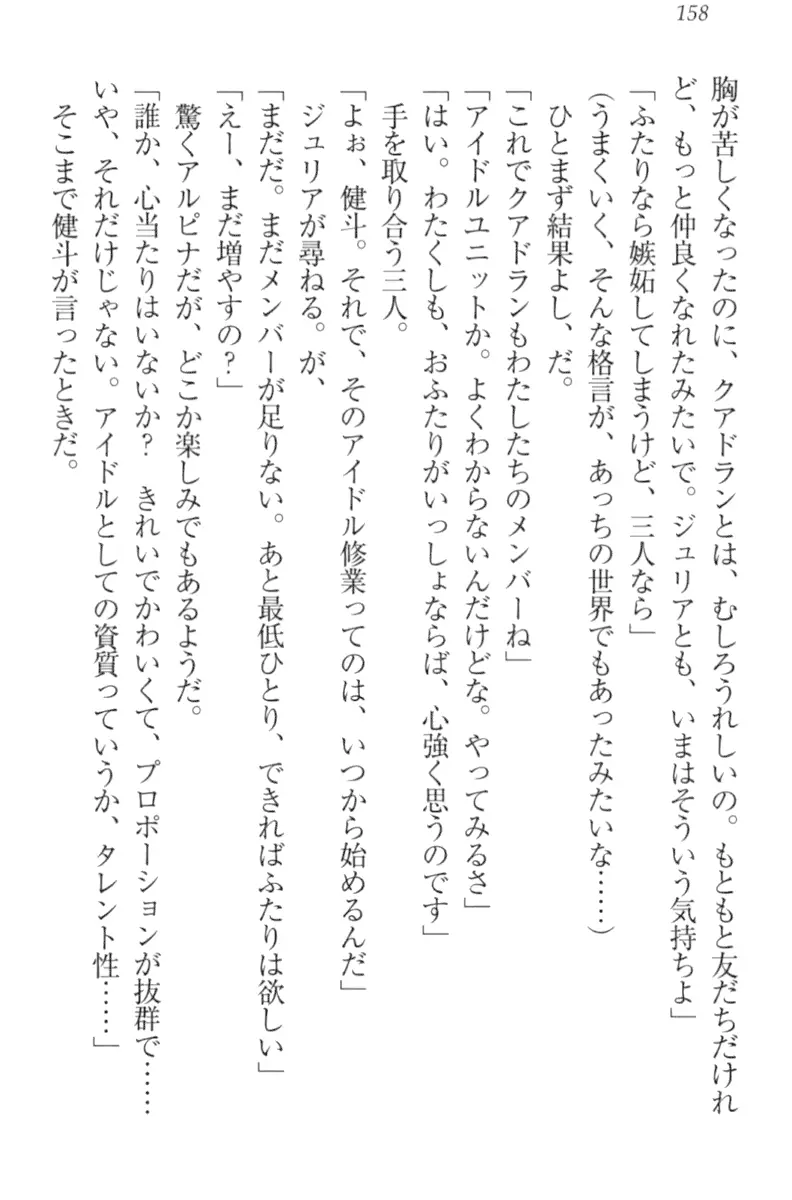 158
胸が苦しくなったのに、クアドランとは、むしろうれしいの。もともと友だちだけれ
ど、もっと仲良くなれたみたいで。ジュリアとも、いまはそういう気持ちよ」
「ふたりなら嫉妬してしまうけど、三人なら」
(うまくいく、そんな格言が、あっちの世界でもあったみたいな……)
ひとまず結果よし、だ。
「これでクアドランもわたしたちのメンバーね」
「アイドルユニットか。よくわからないんだけどな。やってみるさ」
「はい。わたくしも、おふたりがいっしょならば、心強く思うのです」
手を取り合う三人。
「よぉ、健斗。それで、そのアイドル修業ってのは、いつから始めるんだ」
ジュリアが尋ねる。が、
「まだだ。まだメンバーが足りない。あと最低ひとり、できればふたりは欲しい」
「えー、まだ増やすの？」
驚くアルピナだが、どこか楽しみでもあるようだ。
「誰か、心当たりはいないか？　きれいでかわいくて、プロポーションが抜群で……
いや、それだけじゃない。アイドルとしての資質っていうか、タレント性……」
そこまで健斗が言ったときだ。